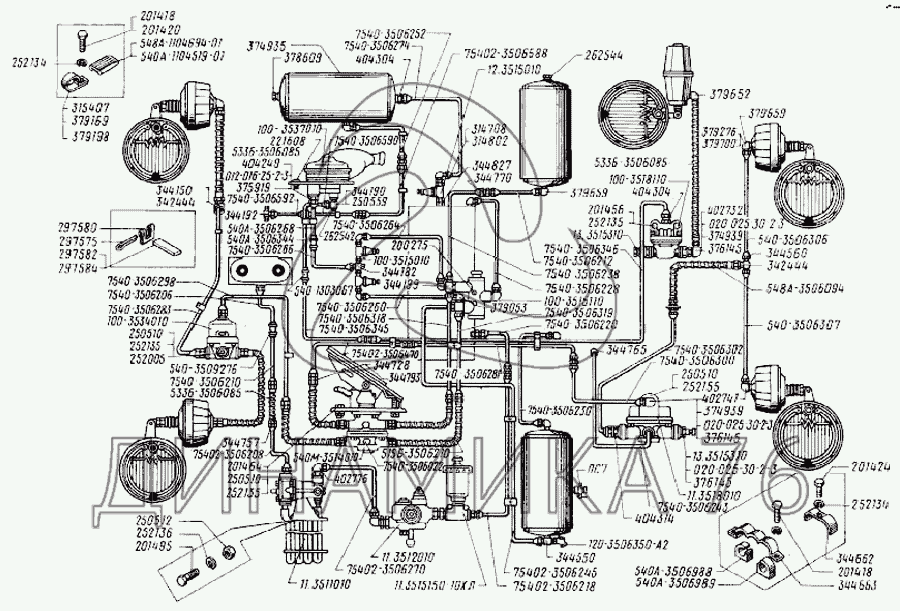 201418
201420
548А-1104694-01
540А-1104519-02
252134
315407
379169
379198
374935
378609
7540-3506252
7540-3506274
404304
75402-3506588
12.3515010
262544
379652
379659
379276
100-3537010
221608
7540-3506590
5336-3506085
404249
012-016-25-2-3
375919
7540-3506592
314708
314802
344827
344770
379659
5336-3506085
100-3518110
404304
344150
342444
344190
250559
344192
7540-3506264
540А-3506268
540А-3506344
7540-3506266
262542
200275
100-3515010
344782
344199
201456
252135
13.3515310
402732
020-025-30-2-3
374939
376145
540-3506306
344560
342444
548А-3506094
297580
297575
297582
297584
7540-3506346
7540-3506212
7540-3506238
7540-3506228
100-3515110
7540-3506319
7540-3506220
379053
540-1303067
7540-3506298
7540-3506206
7540-3506283
100-3534010
250510
252135
252005
7540-3506260
7540-3506318
7540-3506345
540-3509276
7540-3506210
5336-3506085
75402-3506470
344728
344793
7540-3506281
344765
7540-3506302
7540-3506300
540-3506307
250510
252155
402747
374939
020-025-30-2-3
376145
7540-3506230
344757
75402-3506208
201464
250510
252155
540М-3514010
402776
13.3515310
020-025-30-2-3
376145
11.3518010
7540-3506243
404314
201424
252134
ДИНАМИКА 76
250512
252136
201495
11.3511010
11.3512010
75402-3506270
11.3515150 10ХЛ
120-3506350-А2
344550
75402-3506246
75402-3506218
540А-3506988
540А-3506989
344662
201418
344663